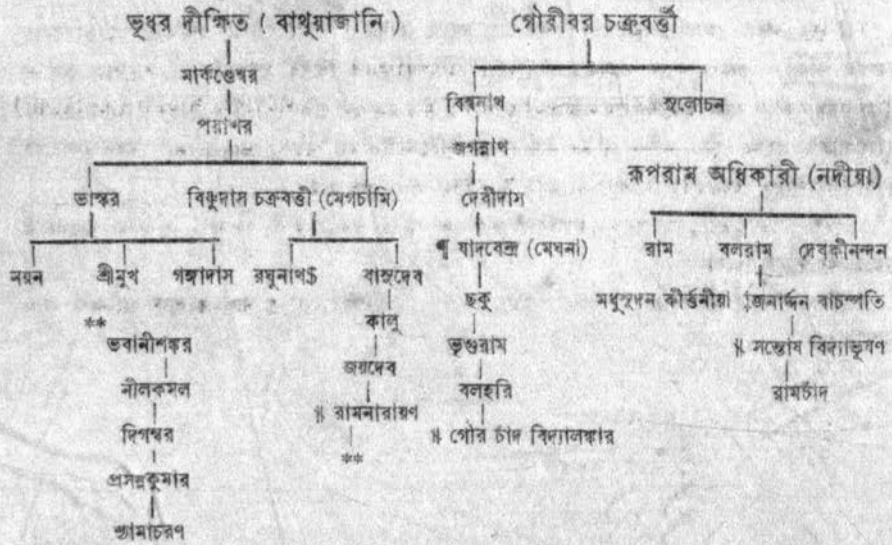 ভূধর দীক্ষিত ( বাথুয়াজানি )
মার্কণ্ডেশ্বর
পরাশর
ভাস্কর বিষ্ণুদাস চক্রবর্ত্তী (মেগচামি)
নয়ন শ্রীমুখ গঙ্গাদাস রঘুনাথ$ বাসুদেব
** কালু
ভবানীশঙ্কর জয়দেব
নীলকমল ॥ রামনারায়ণ
দিগম্বর **
প্রসন্নকুমার
শ্যামাচরণ
গৌরীবর চক্রবর্ত্তী
বিশ্বনাথ সুলোচন
জগন্নাথ
দেবীদাস
¶ যাদবেন্দ্র (মেঘনা)
ছকু
ভৃগুরাম
বলহরি
॥ গৌর চাঁদ বিদ্যালঙ্কার
রূপরাম অধিকারী (নদীয়া)
রাম বলরাম দেবকীনন্দন
মধুসূদন কীর্ত্তনীয়া জনার্দ্দন বাচস্পতি
॥ সন্তোষ বিদ্যাভূষণ
রামচাঁদ